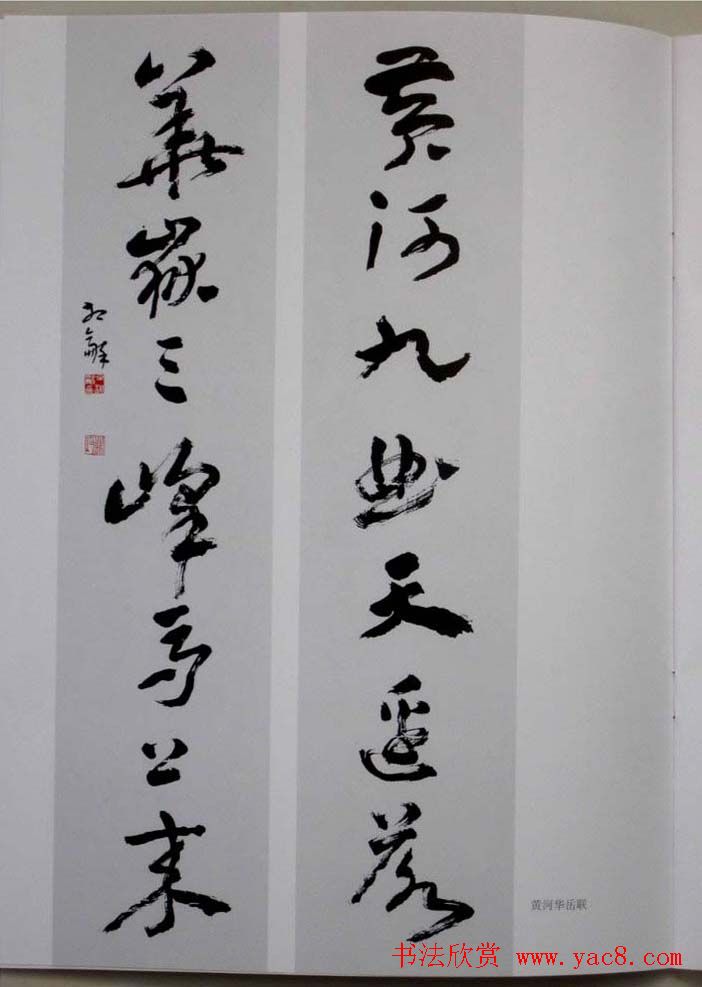 黄河九曲天邊落
華嶽三峰馬上来
黄河华岳联
书法欣赏 www.yac8.com